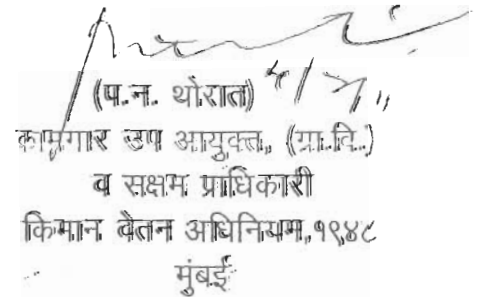 (प.न. थोरात)
कामगार उप आयुक्त, (ग्रा.वि.)
व सक्षम प्राधिकारी
किमान वेतन अधिनियम,१९४८
मुंबई